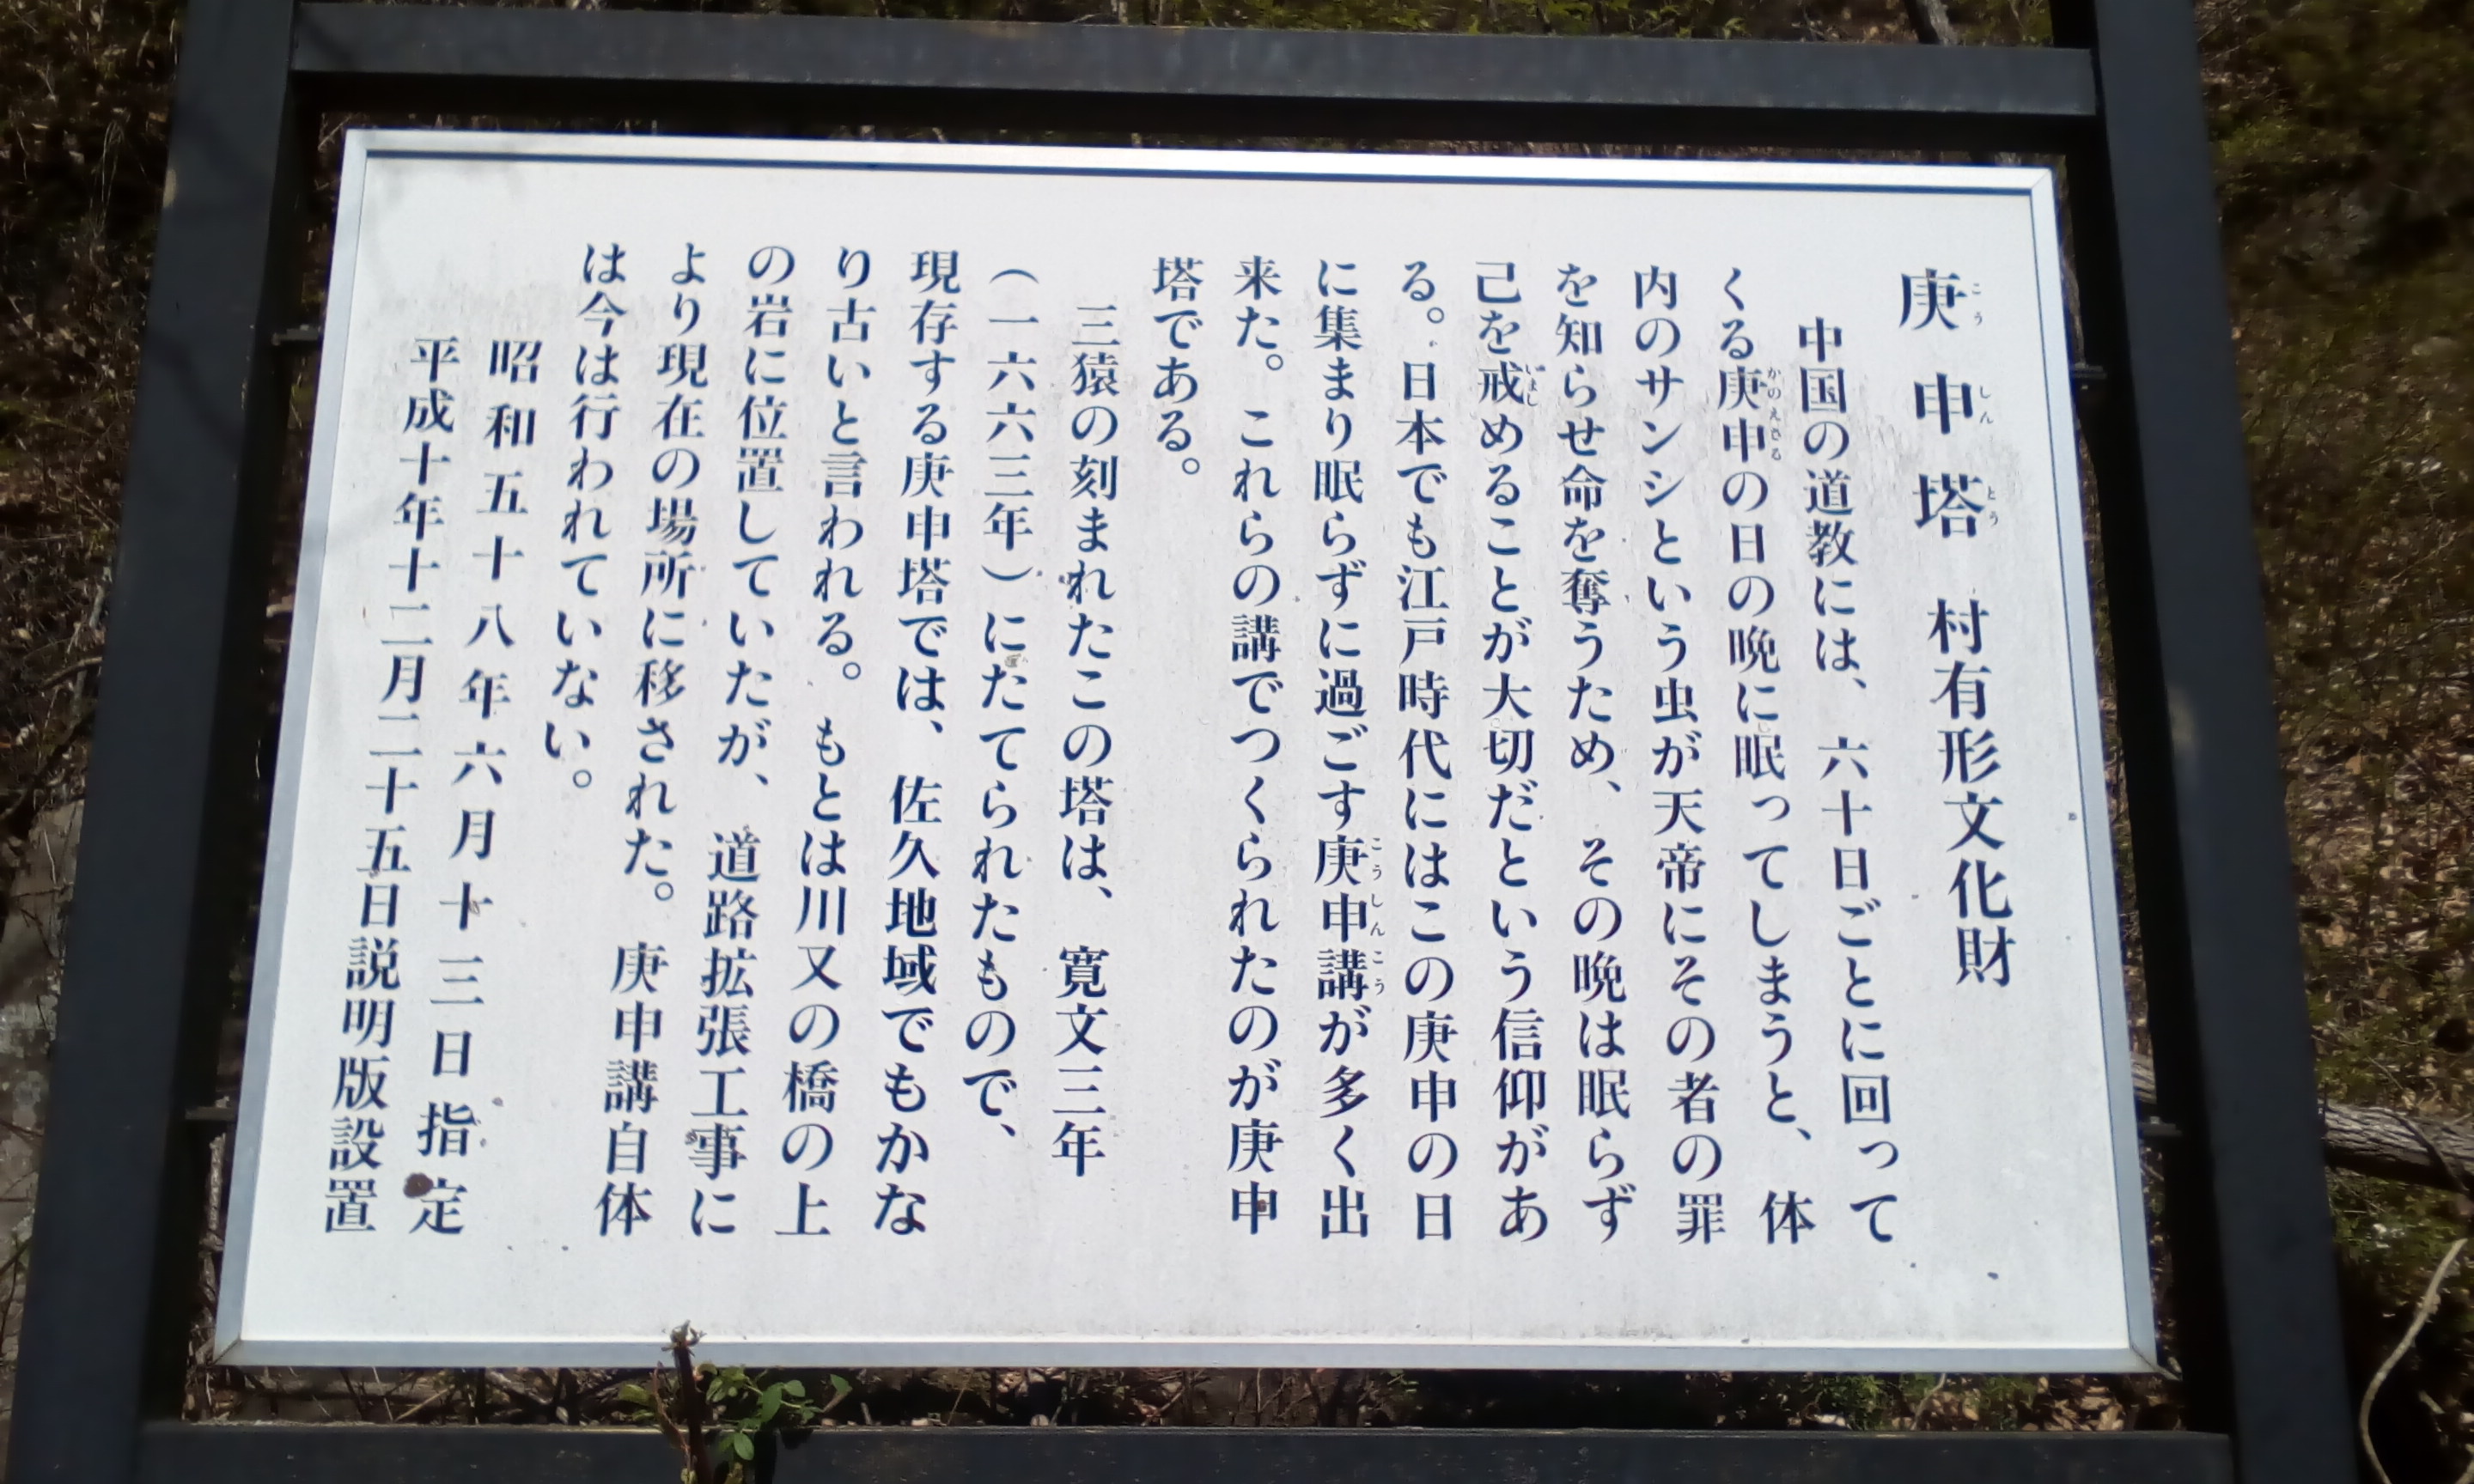 庚申塔 村有形文化財
中国の道教には、六十日ごとに回って
くる庚申の日の晩に眠ってしまうと、体
内のサンシという虫が天帝にその者の罪
を知らせ命を奪うため、その晩は眠らず
己を戒めることが大切だという信仰があ
る。日本でも江戸時代にはこの庚申の日
に集まり眠らずに過ごす庚申講が多く出
来た。これらの講でつくられたのが庚申
塔である。
三猿の刻まれたこの塔は、寛文三年
(一六六三年)にたてられたもので、
現存する庚申塔では、佐久地域でもかな
り古いと言われる。もとは川又の橋の上
の岩に位置していたが、道路拡張工事に
より現在の場所に移された。庚申講自体
は今は行われていない。
昭和五十八年六月十三日指定
平成十年十二月二十五日説明版設置